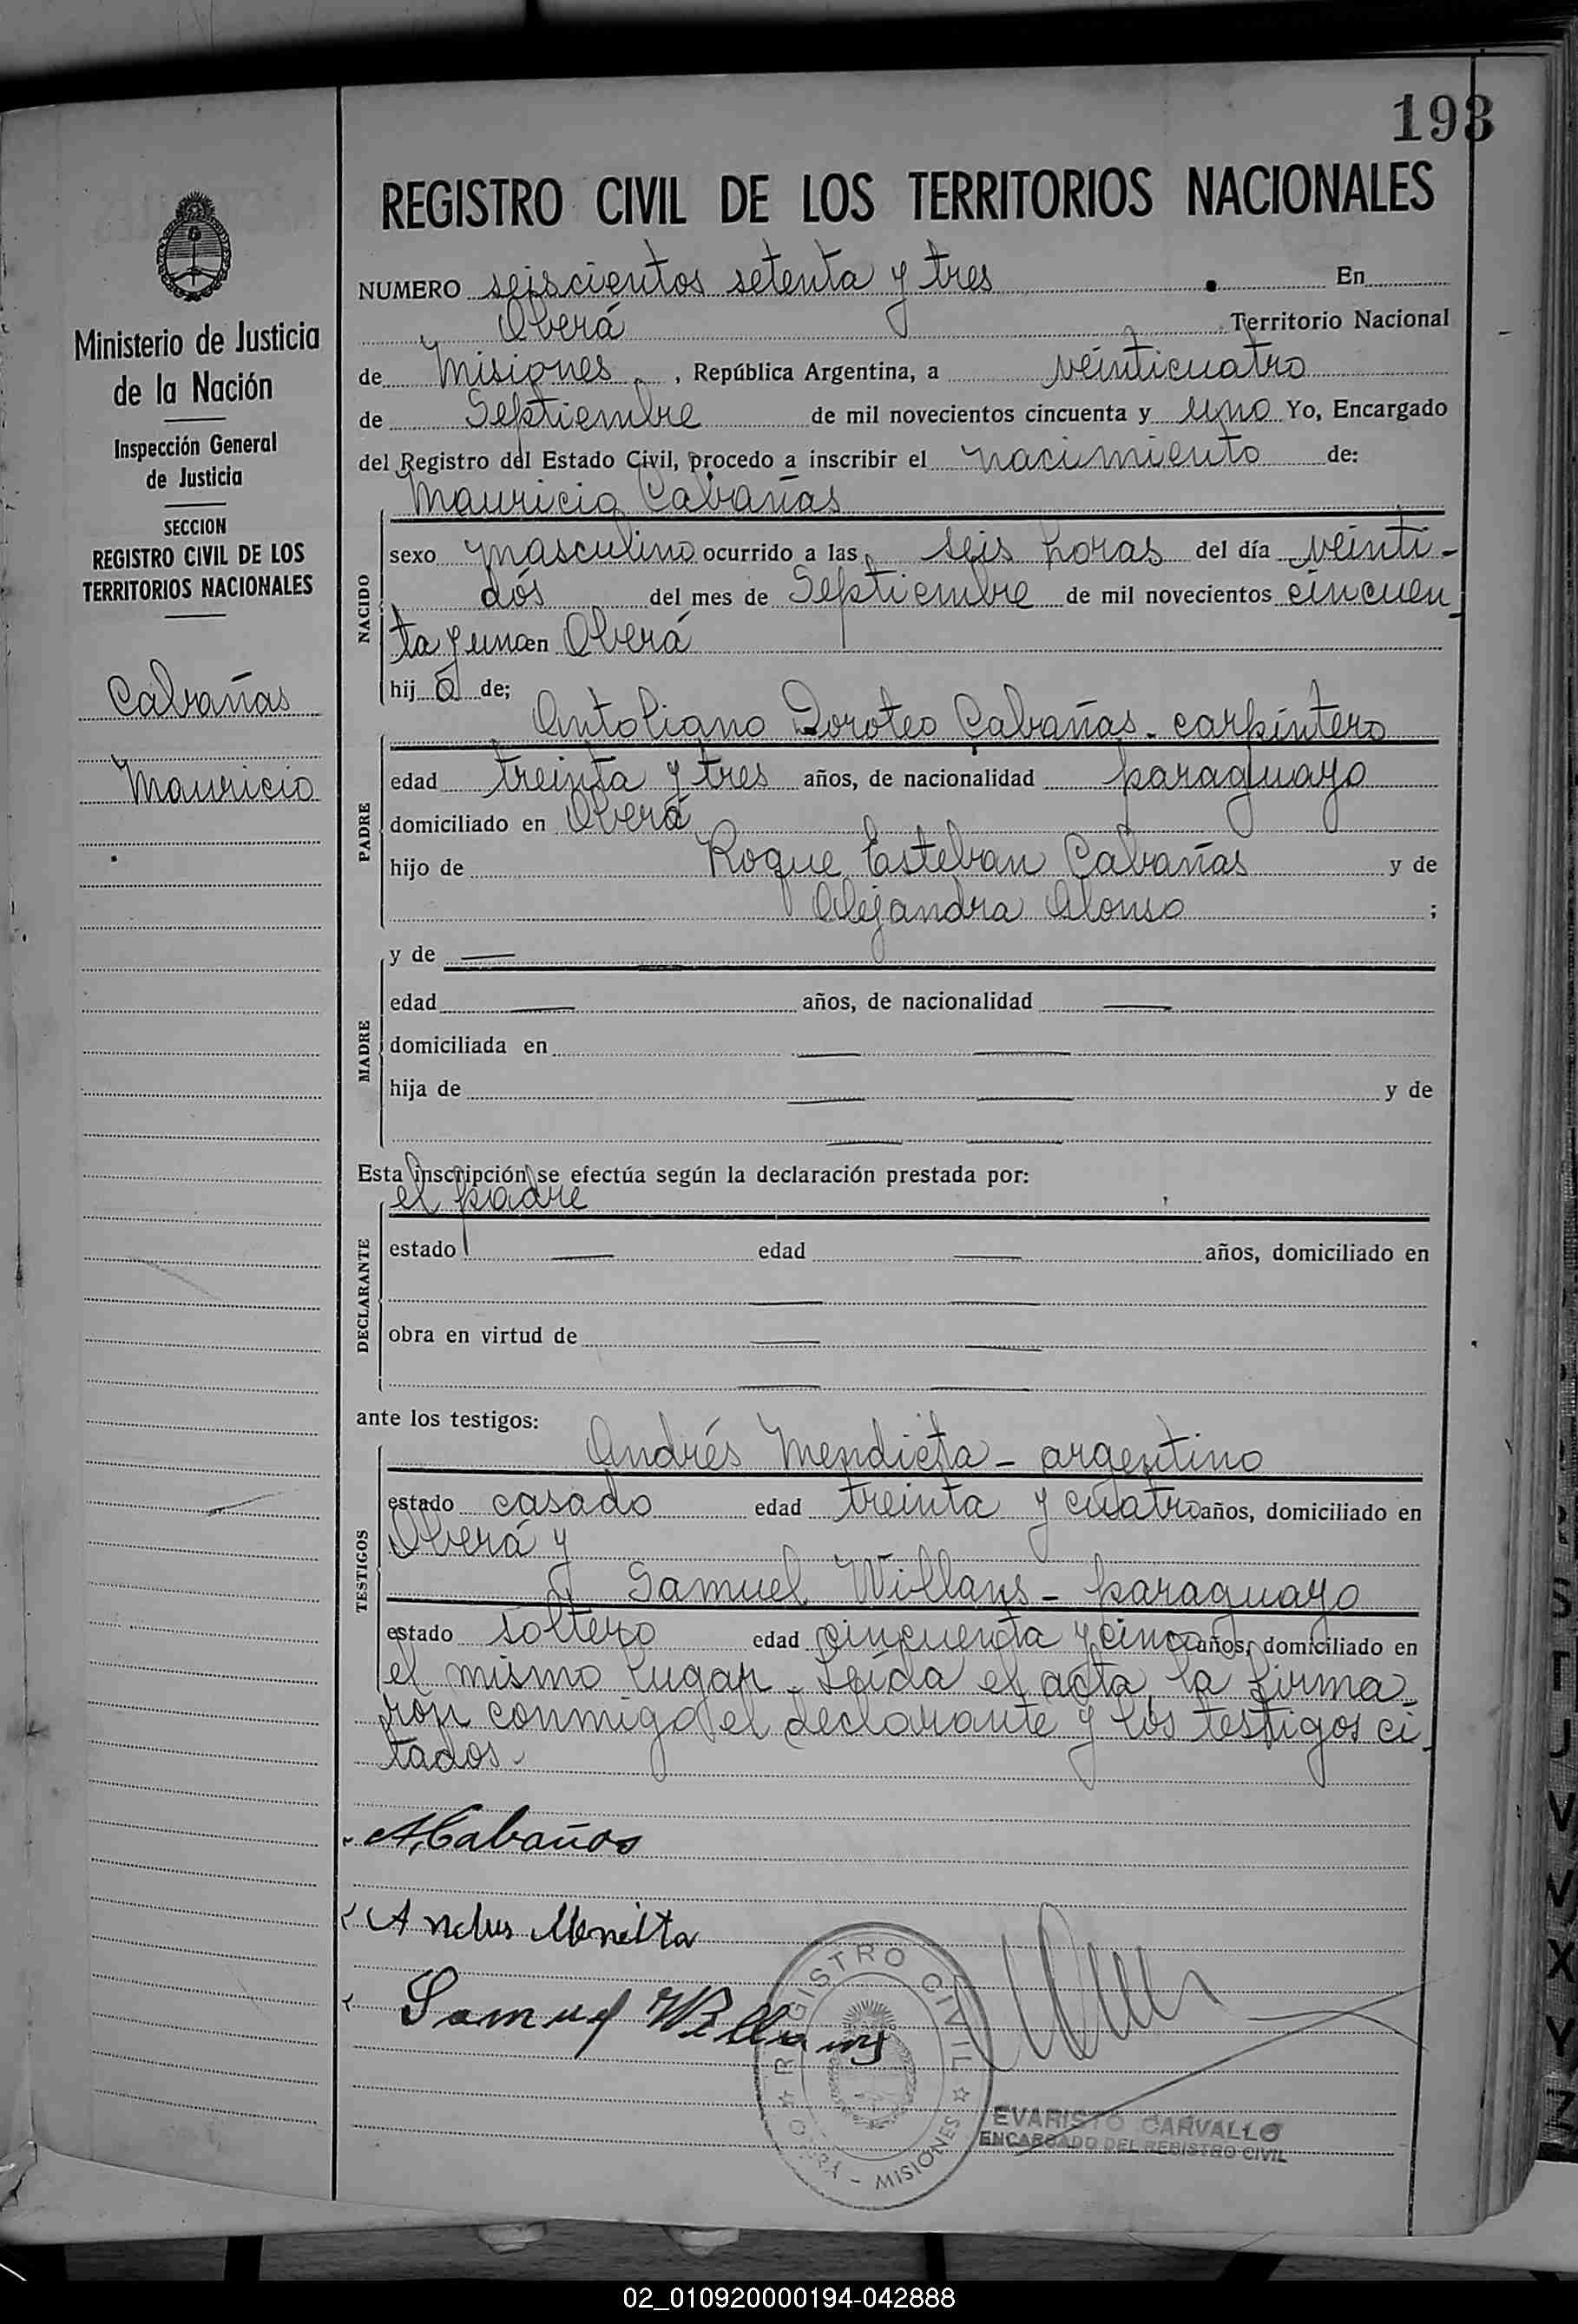 193
REGISTRO CIVIL DE LOS TERRITORIOS NACIONALES
Ministerio de Justicia
de la Nación
Inspección General
de Justicia
SECCION
REGISTRO CIVIL DE LOS
TERRITORIOS NACIONALES
Cabañas
Mauricio
NUMERO seiscientos setenta y tres . En
Oberá Territorio Nacional
de Misiones, República Argentina, a veinticuatro
de Septiembre de mil novecientos cincuenta y uno Yo, Encargado
del Registro del Estado Civil, procedo a inscribir el nacimiento de:
Mauricio Cabañas
NACIDO
sexo masculino ocurrido a las seis horas del día veinti-
dós del mes de Septiembre de mil novecientos cincuen-
ta y uno en Oberá
hij o de;
PADRE
Antoligno Doroteo Cabañas - carpintero
edad treinta y tres años, de nacionalidad paraguayo
domiciliado en Oberá
hijo de Roque Esteban Cabañas y de
Alejandra Alonso ;
MADRE
y de —
edad — años, de nacionalidad —
domiciliada en — —
hija de — — y de
— —
Esta inscripción se efectúa según la declaración prestada por:
el padre
DECLARANTE
estado — edad — años, domiciliado en
— —
obra en virtud de — —
— —
ante los testigos:
TESTIGOS
Andrés Mendieta - argentino
estado casado edad treinta y cuatro años, domiciliado en
Oberá y
Samuel Willans - paraguayo
estado soltero edad cincuenta y cinco años, domiciliado en
el mismo lugar. Leída el acta, la firma-
ron conmigo el declarante y los testigos ci-
tados.-
A. Cabañas
Samuel
REGISTRO CIVIL
OBERA - MISIONES
EVARISTO CARVALLO
ENCARGADO DEL REGISTRO CIVIL
S
T
J
V
V
X
Y
Z
02_010920000194-042888